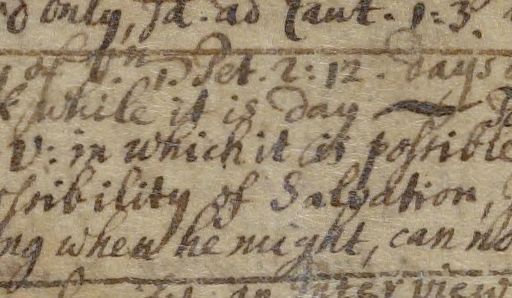 only, Id. ad Cant. 1: 3.
of 1 Pet. 2: 12. days
while it is day
V: in which it is possible
ssibility of Salvation,
ng when he might, can no
an interview